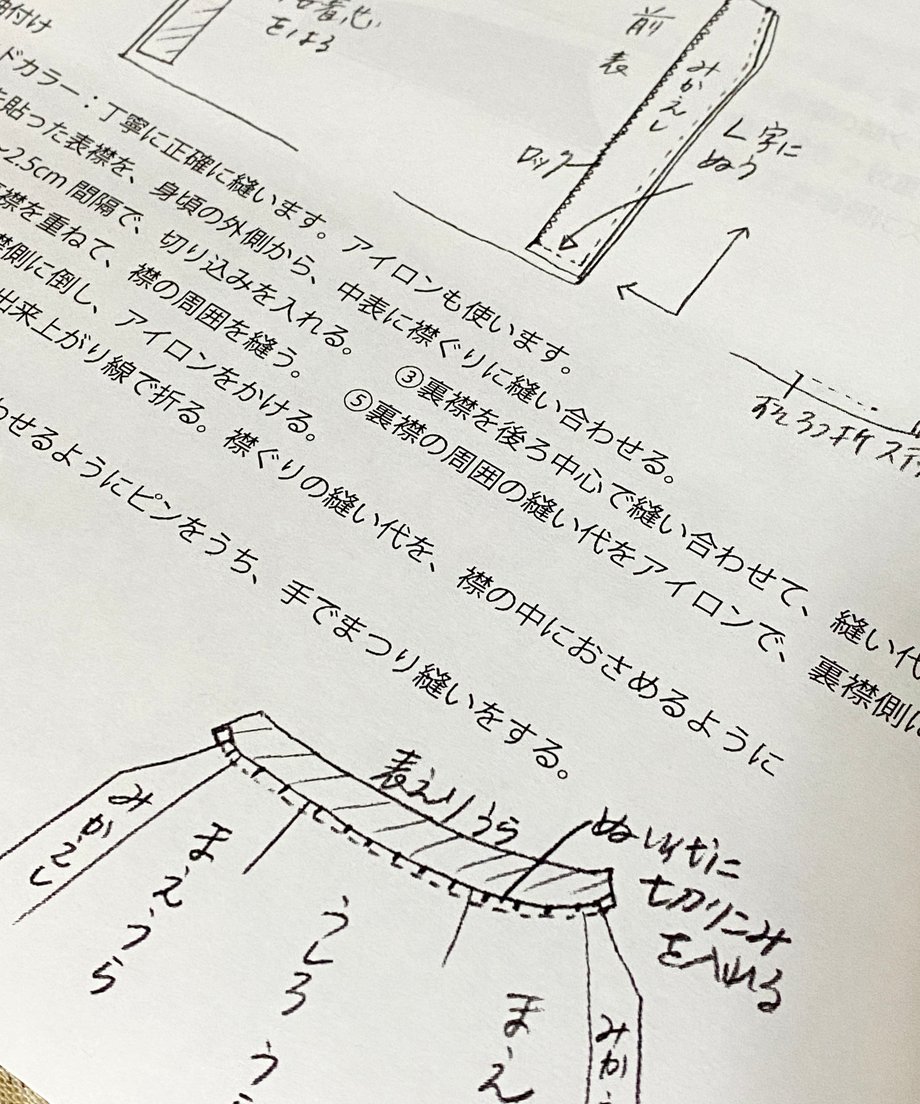 接着芯
をはる
前
表
みかえし
ロック
L字に
ぬう
付け
ドカラー：丁寧に正確に縫います。アイロンも使います。
貼った表襟を、身頃の外側から、中表に襟ぐりに縫い合わせる。
2.5cm間隔で、切り込みを入れる。 ③裏襟を後ろ中心で縫い合わせて、縫い代
襟を重ねて、襟の周囲を縫う。 ⑤裏襟の周囲の縫い代をアイロンで、裏襟側に
側に倒し、アイロンをかける。
出来上がり線で折る。襟ぐりの縫い代を、襟の中におさめるように
わせるようにピンをうち、手でまつり縫いをする。
表えりうら
ぬいしろに
切りこみ
を入れる
みかえし
まえうら
うしろう
まえ
みか